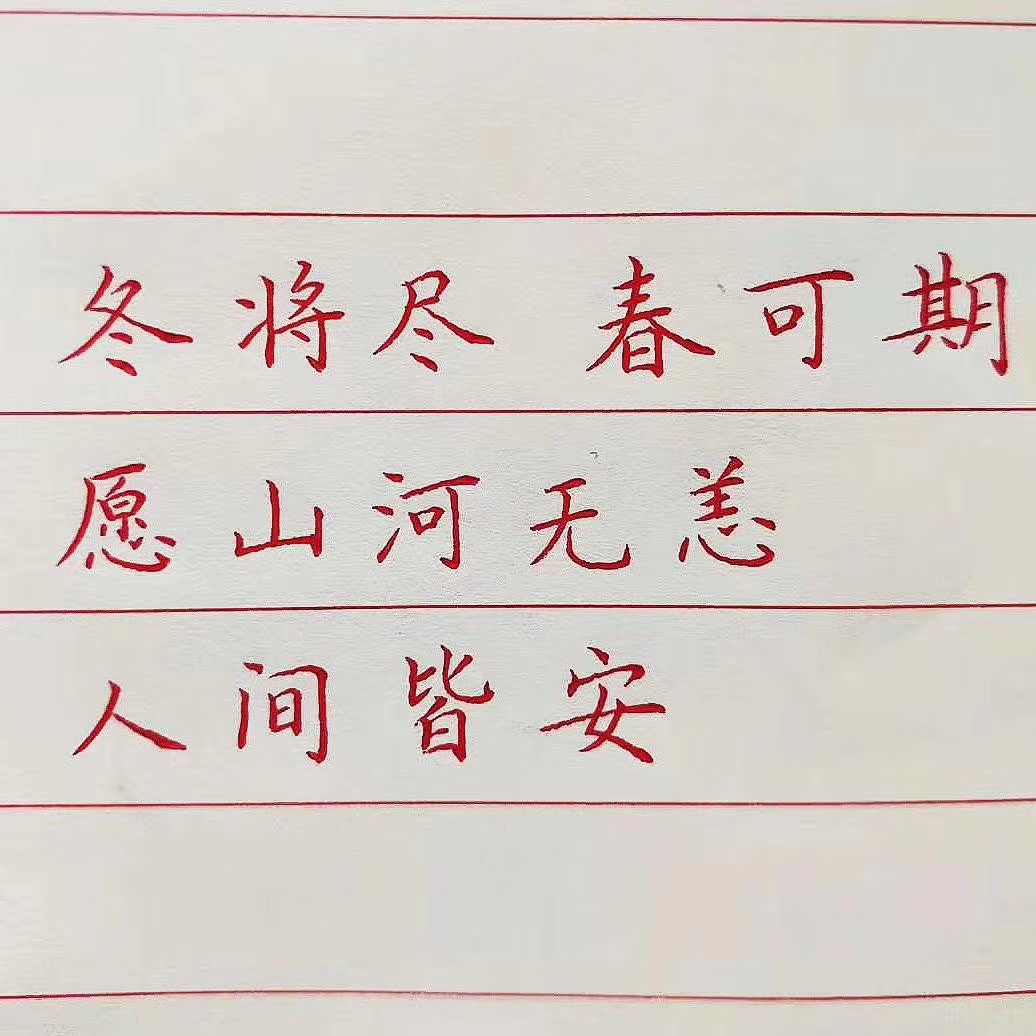 冬将尽 春可期
愿山河无恙
人间皆安